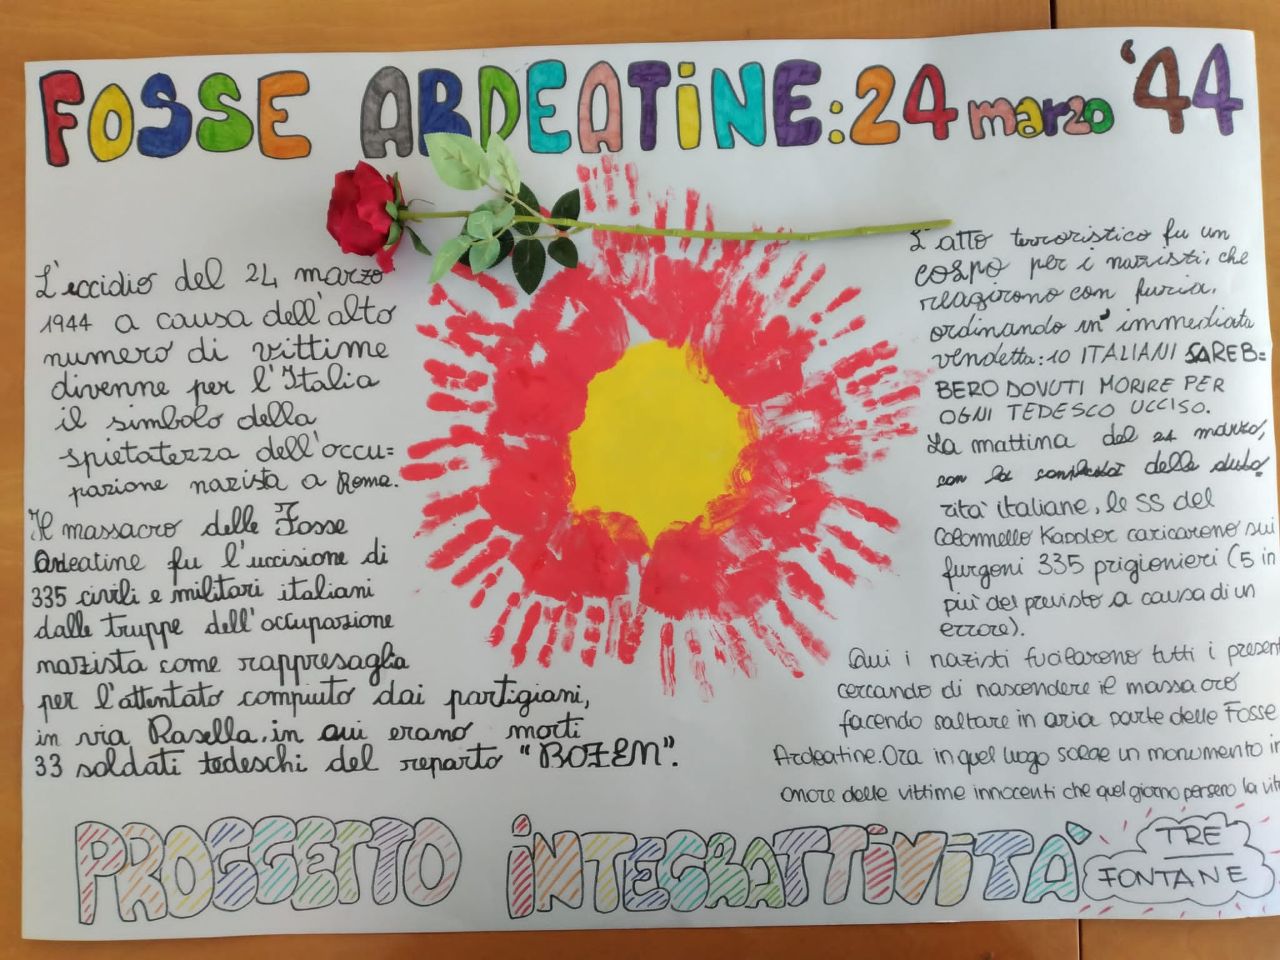 FOSSE ARDEATINE: 24 marzo '44
L'eccidio del 24 marzo
1944 a causa dell'alto
numero di vittime
divenne per l'Italia
il simbolo della
spietatezza dell'occu=
pazione nazista a Roma.
Il massacro delle Fosse
Ardeatine fu l'uccisione di
335 civili e militari italiani
dalle truppe dell'occupazione
nazista come rappresaglia
per l'attentato compiuto dai partigiani,
in via Rasella, in cui erano morti
33 soldati tedeschi del reparto "BOZEN".
L'atto terroristico fu un
colpo per i nazisti, che
reagirono con furia,
ordinando un' immediata
vendetta: 10 ITALIANI SAREB=
BERO DOVUTI MORIRE PER
OGNI TEDESCO UCCISO.
La mattina del 24 marzo,
con la delle
rità italiane, le SS del
Colonnello Kappler caricarono sui
furgoni 335 prigionieri (5 in
più del previsto a causa di un
errore).
Qui i nazisti fucilarono tutti i present
cercando di nascondere il massacro
facendo saltare in aria parte delle Fosse
Ardeatine. Ora in quel luogo sorge un monumento in
onore delle vittime innocenti che quel giorno persero la vita
PROGGETTO INTEGRATTIVITÀ
TRE
FONTANE